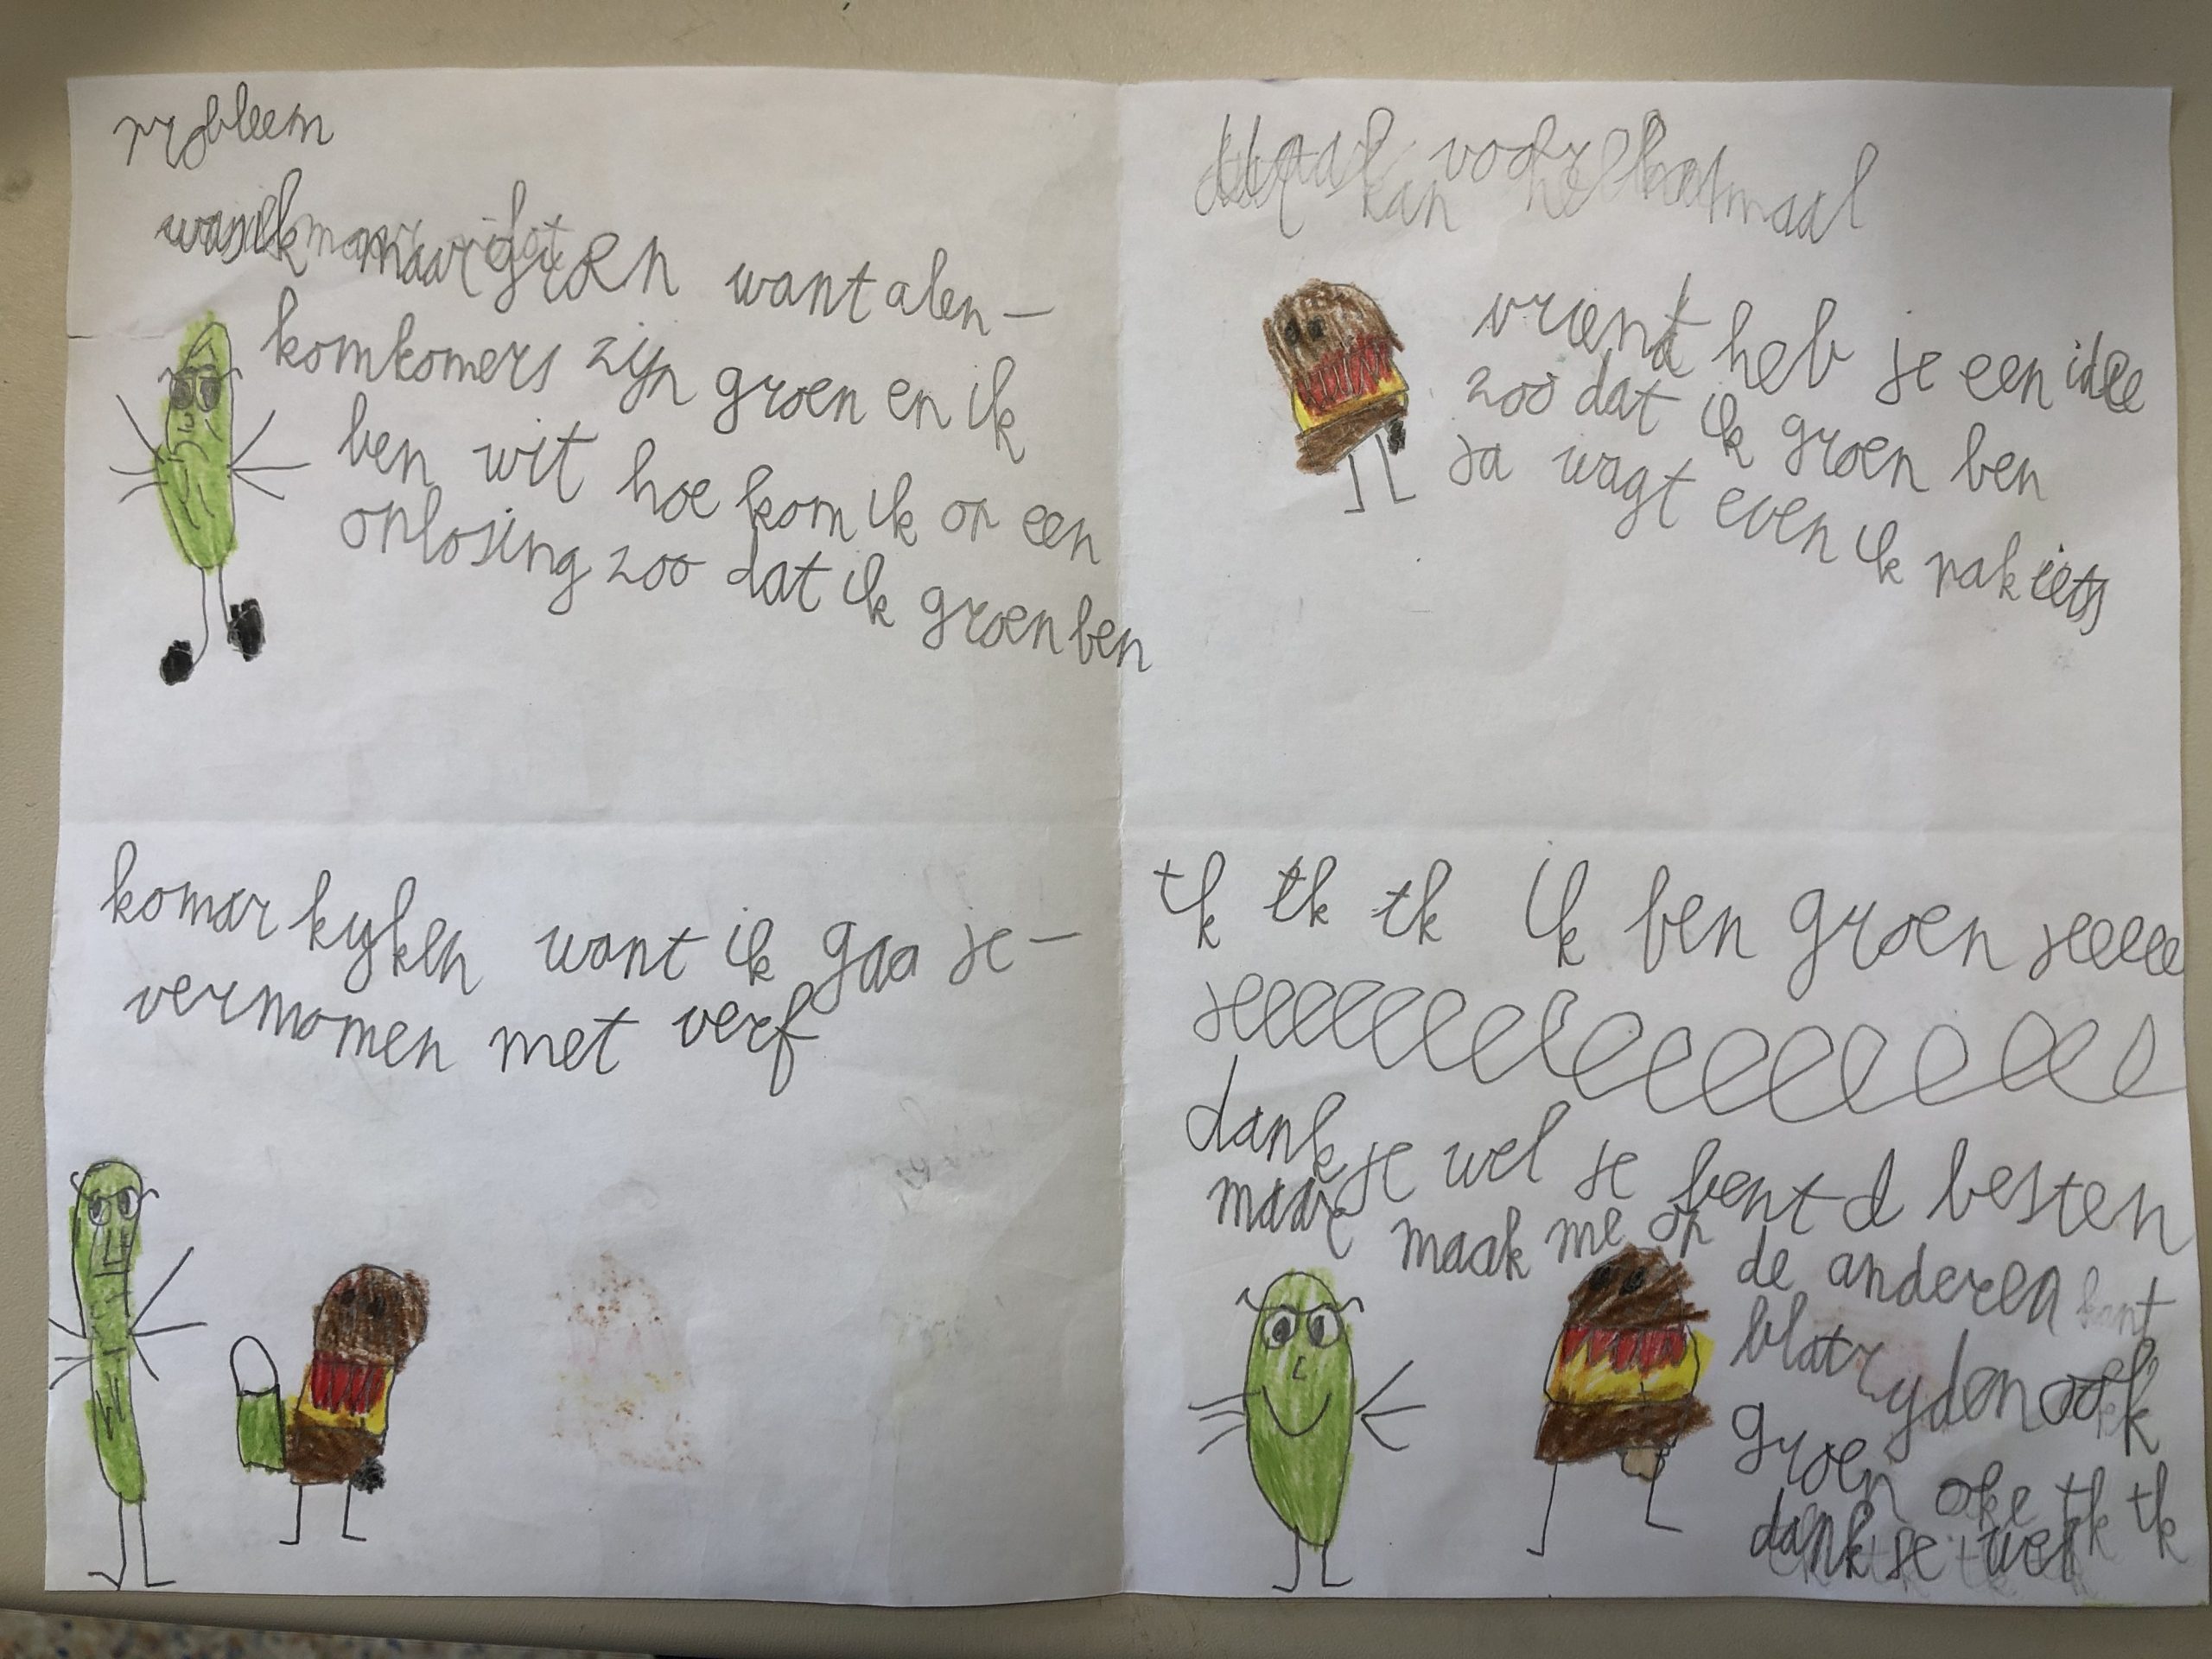 probleem
was ik maar groen want alen-
komkomers zijn groen en ik
ben wit hoe kom ik op een
oplosing zoo dat ik groen ben
vrient heb je een idee
zoo dat ik groen ben
ja wagt even ik pak iets
komar kijken want ik gaa je-
vermomen met verf
tk tk tk ik ben groen jeeeee
jeeeeeeeeeeeeeeeeeee
dank je wel je bent d besten
maar maak me op de anderen kant
blatzyden ook
groen oke tk tk
dank je wel